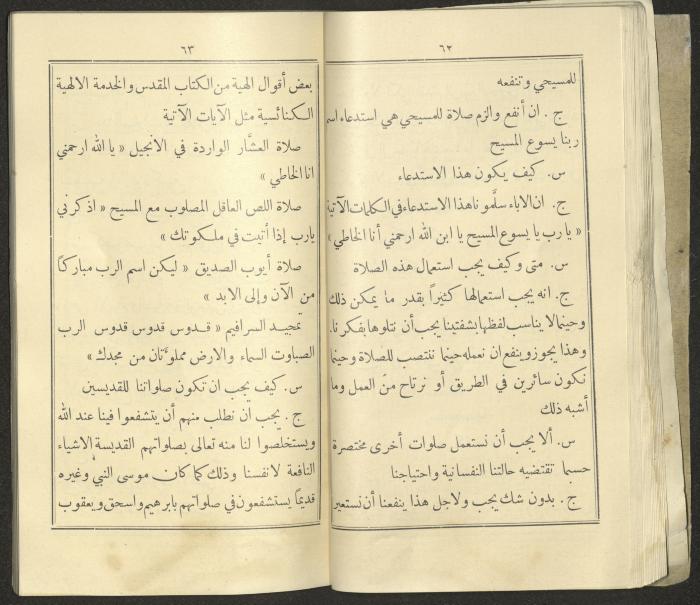 ٦٢
للمسيحي وتنفعه
ج . ان أنفع والزم صلاة للمسيحي هي استدعاء اسم
ربنا يسوع المسيح
س . كيف يكون هذا الاستدعاء
ج . ان الاباء سلَّمونا هذا الاستدعاء في الكلمات الآتية
« يا رب يا يسوع المسيح يا ابن الله ارحمني أنا الخاطي »
س . متى وكيف يجب استعمال هذه الصلاة
ج . انه يجب استعمالها كثيراً بقدر ما يمكن ذلك
وحينما لا يناسب لفظها بشفتينا يجب أن نتلوها بفكرنا .
وهذا يجوز وينفع ان نعمله حينما ننتصب للصلاة وحينما
نكون سائرين في الطريق أو نرتاح من العمل وما
أشبه ذلك
س . ألا يجب أن نستعمل صلوات أخرى مختصرة
حسبما تقتضيه حالتنا النفسانية واحتياجنا
ج . بدون شك يجب ولاجل هذا ينفعنا أن نستعير
٦٣
بعض أقوال الهية من الكتاب المقدس والخدمة الالهية
الكنائسية مثل الآيات الآتية
صلاة العشَّار الواردة في الانجيل « يا الله ارحمني
انا الخاطي »
صلاة اللص العاقل المصلوب مع المسيح « اذكرني
يارب إذا أتيت في ملكوتك »
صلاة أيوب الصديق « ليكن اسم الرب مباركاً
من الآن وإلى الابد »
تمجيد السرافيم « قدوس قدوس قدوس الرب
الصباوت السماء والارض مملوءتان من مجدك »
س . كيف يجب ان تكون صلواتنا للقديسين
ج . يجب ان نطلب منهم أن يتشفعوا فينا عند الله
ويستخلصوا لنا منه تعالى بصلواتهم القديسة الاشياء
النافعة لانفسنا وذلك كما كان موسى النبي وغيره
قديماً يستشفعون في صلواتهم بابرهيم واسحق ويعقوب